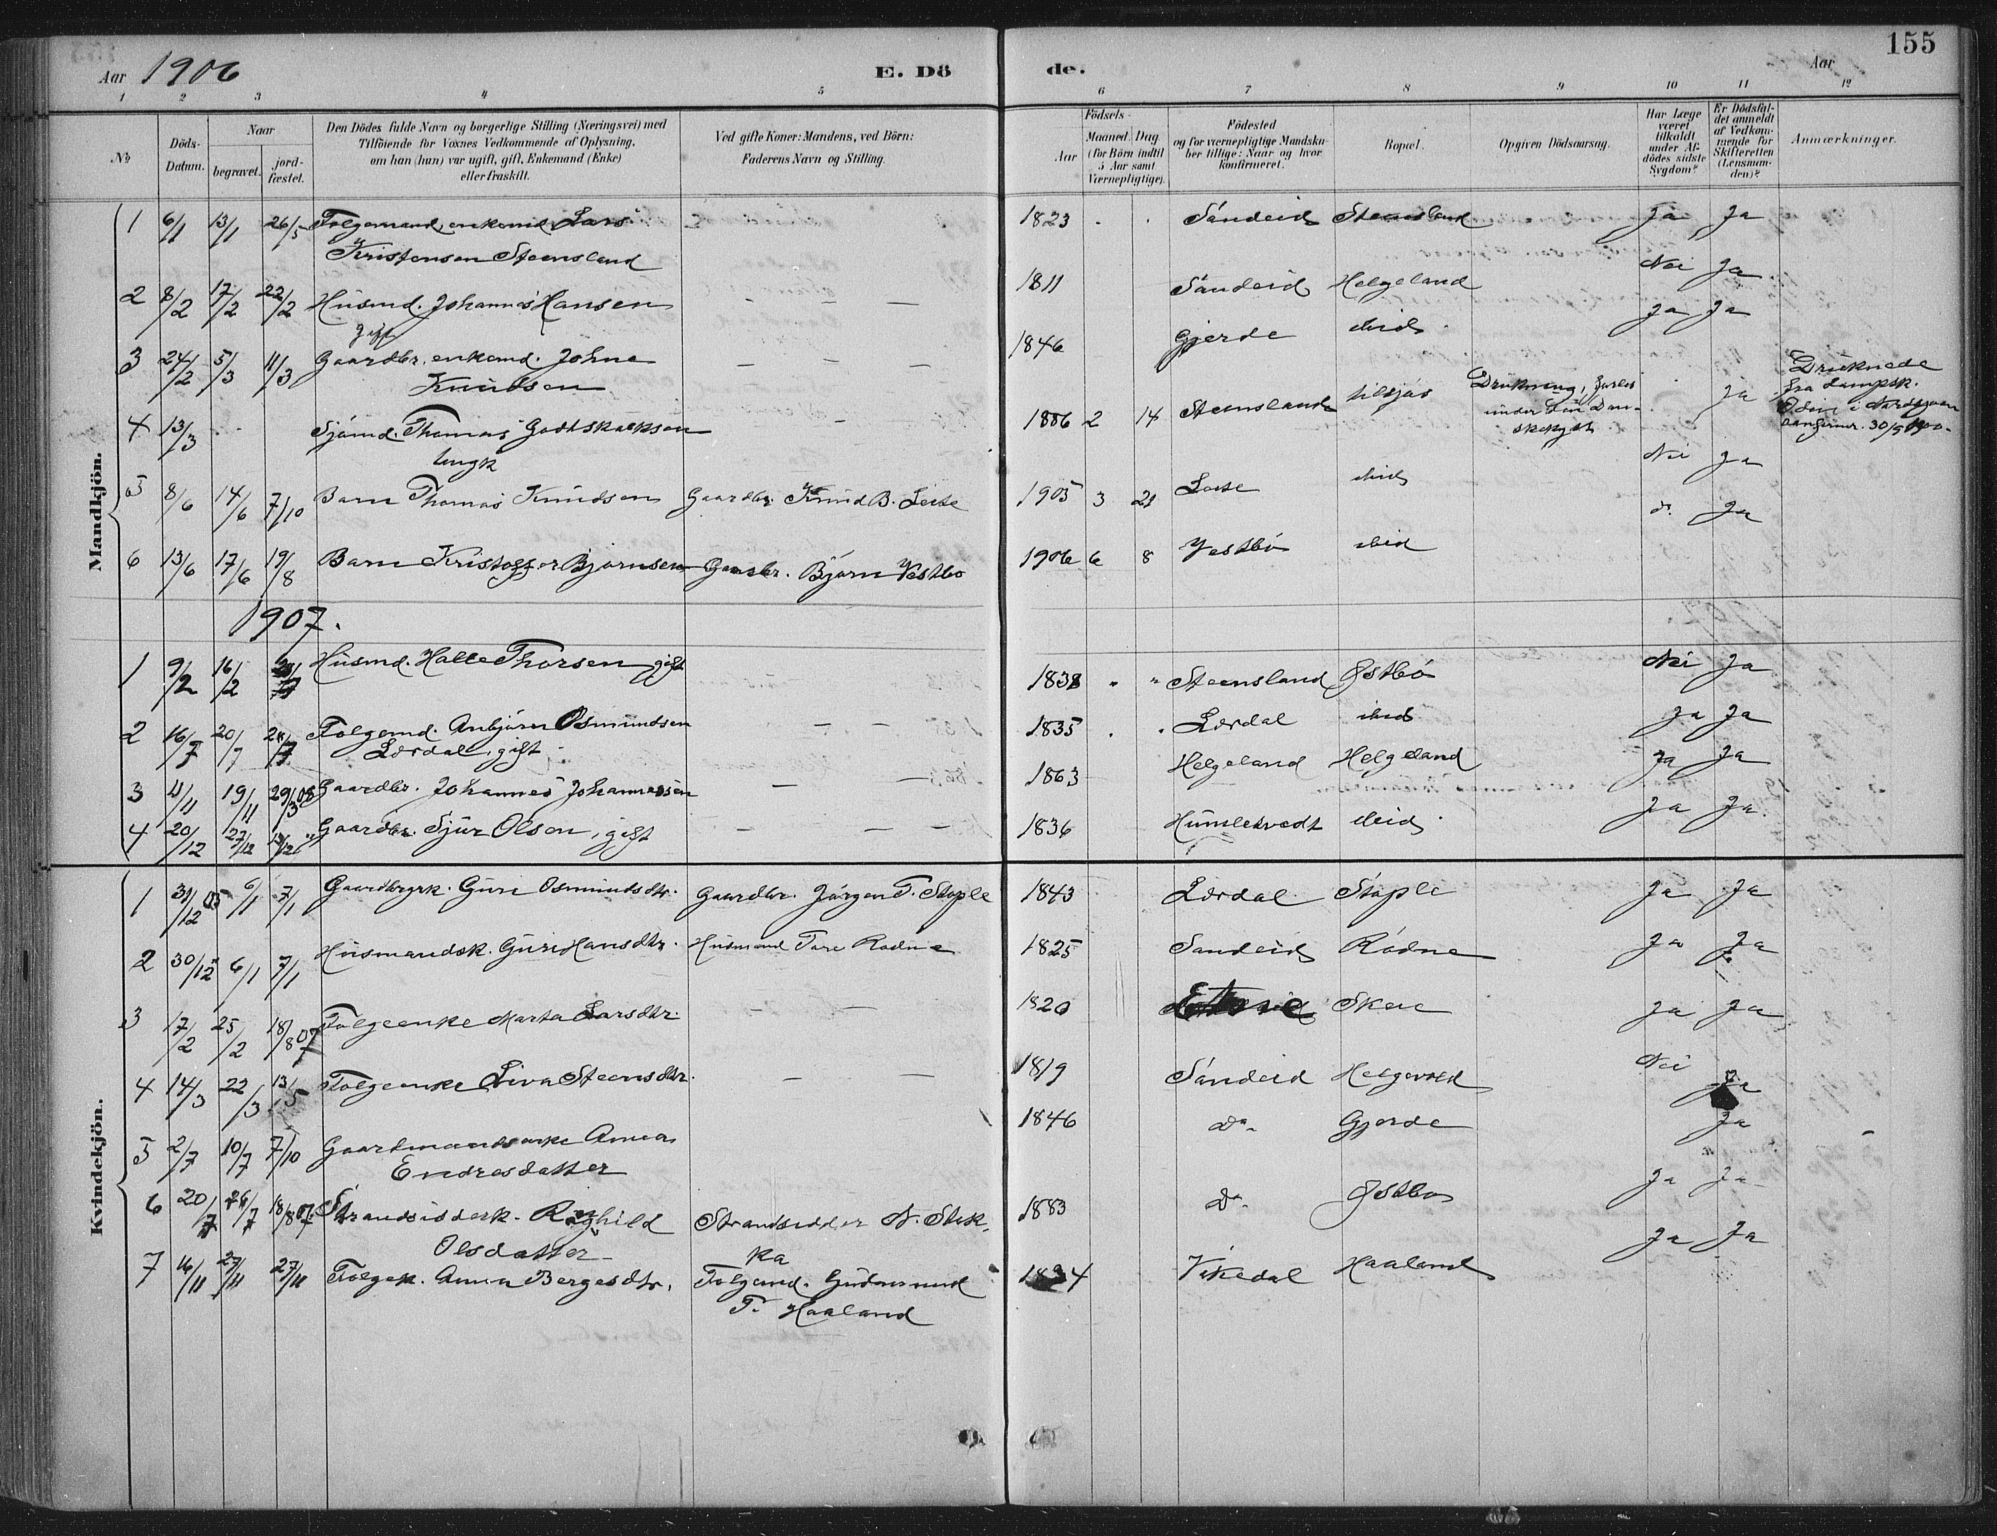 155
Aar 1906 E. Dö de. Aar
1 2 3 4 5 6 7 8 9 10 11 12
No Döds-Datum. Naar begravet. jord-fæstet. Den Dödes fulde Navn og borgerlige Stilling (Næringsvei) med Tilföiende for Voxnes Vedkommende af Oplysning, om han (hun) var ugift, gift, Enkemand (Enke) eller fraskilt. Ved gifte Koner: Mandens, ved Börn: Faderens Navn og Stilling. Födsels- Aar Maaned Dag (for Börn indtil 5 Aar samt Værnepligtige). Födested og for værnepligtige Mandskaber tillige: Naar og hvor konfirmeret. Bopæl. Opgiven Dödsaarsag. Har Læge været tilkaldt under Afdödes sidste Sygdom? Er Dödsfaldet anmeldt af Vedkommende for Skifteretten (Lensmanden)? Anmærkninger.
Mandkjön.
1 6/1 13/1 26/5 Folgemand, enkemd Lars 1823 Sandeid Steensland Ja Ja
Kristensen Steensland
2 8/2 17/2 22/2 Husmd. Johannes Hansen — — 1811 Sandeid Helgeland Nei Ja
gift
3 24/2 5/3 11/3 Gaardbr. enkemd. Johne — — 1846 Gjerde ibid. Ja Ja
Knudsen
4 13/3 Sjömd. Thomas Godtskalksen 1886 2 14 Steensland tilsjös Drukning, under den Danske kyst Ja Druknede fra Dampsk. Odin i Nordsjøen
ungk
5 8/6 14/6 7/10 Barn Thomas Knudsen Gaardbr. Knud B. Leite 1905 3 21 Leite ibid Nei Ja
6 13/6 17/6 19/8 Barn Kristoffer Bjørnsen Gaardbr. Björn Vestbo 1906 6 8 Vestbö ibid do Ja
1907.
1 9/2 16/2 Husmd. Halle Thorsen gift 1838 " " Steensland Østbö Nei Ja
2 16/7 20/7 Folgemd. Anbjörn Osmundsen — — 1835 Lørdal ibid Ja Ja
Lørdal, gift
3 11/11 19/11 29/3 08 Gaardbr. Johannes Johannessen — — 1863 Helgeland Helgeland Ja Ja
4 20/12 27/12 Gaardbr. Sjur Olsen, gift — — 1836 Humlekvedt ibid. Ja Ja.
Kvindekjön.
1 31/12 05 6/1 7/1 Gaardbrgrk. Guri Osmundsdtr. Gaardbr. Jörgen T. Stople 1843 Lørdal Stople Ja Ja
2 30/12 6/1 7/1 Husmandsk. Guri Hansdtr. Husmand Tore Rødne 1825 Sandeid Rødne Ja Ja
3 17/2 25/2 18/8 07 Folgeenke Marta Larsdtr. — — 1820 Etne Skeie Ja Ja
4 14/3 22/3 13/5 Folgeenke Siva Steensdtr. — — 1819 Sandeid Helgevold Nei Ja
5 2/7 10/7 7/10 Gaardmandsenke Anna 1846 Do. Gjerde Ja
Endresdatter
6 20/7 26/7 18/8 07 Strandsidderk. Ragnhild Strandsidder N. Stek- 1883 Do. Østbø Ja Ja
Olsdatter ka
7 16/11 27/11 27/11 Folgek. Anna Bergesdtr. Folgemd. Gudmund 1834 Vikedal Haaland Ja Ja
T. Haaland